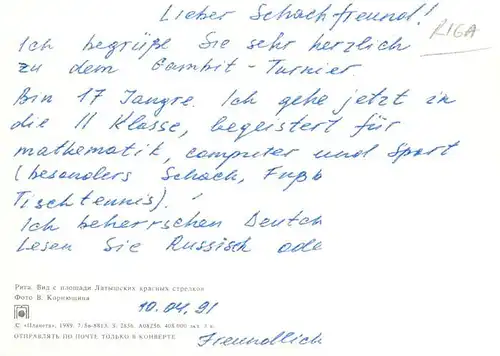 Lieber Schachfreund!
RIGA
Ich begrüße Sie sehr herzlich
zu dem Gambit-Turnier.
Bin 17 Jangre. Ich gehe jetzt in
die 11 Klasse, begeistert für
mathematik, computer und Sport
(besonders Schach, Fußb
Tischtennis).!
Ich beherrschen Deutch
Lesen Sie Russisch ode
Рига. Вид с площади Латышских красных стрелков
Фото В. Корнюшина
10.04.91
© «Планета», 1989. 7/5в-8813. S. 2836. А08256. 405.000 экз. 5 к.
ОТПРАВЛЯТЬ ПО ПОЧТЕ ТОЛЬКО В КОНВЕРТЕ
Freundlich